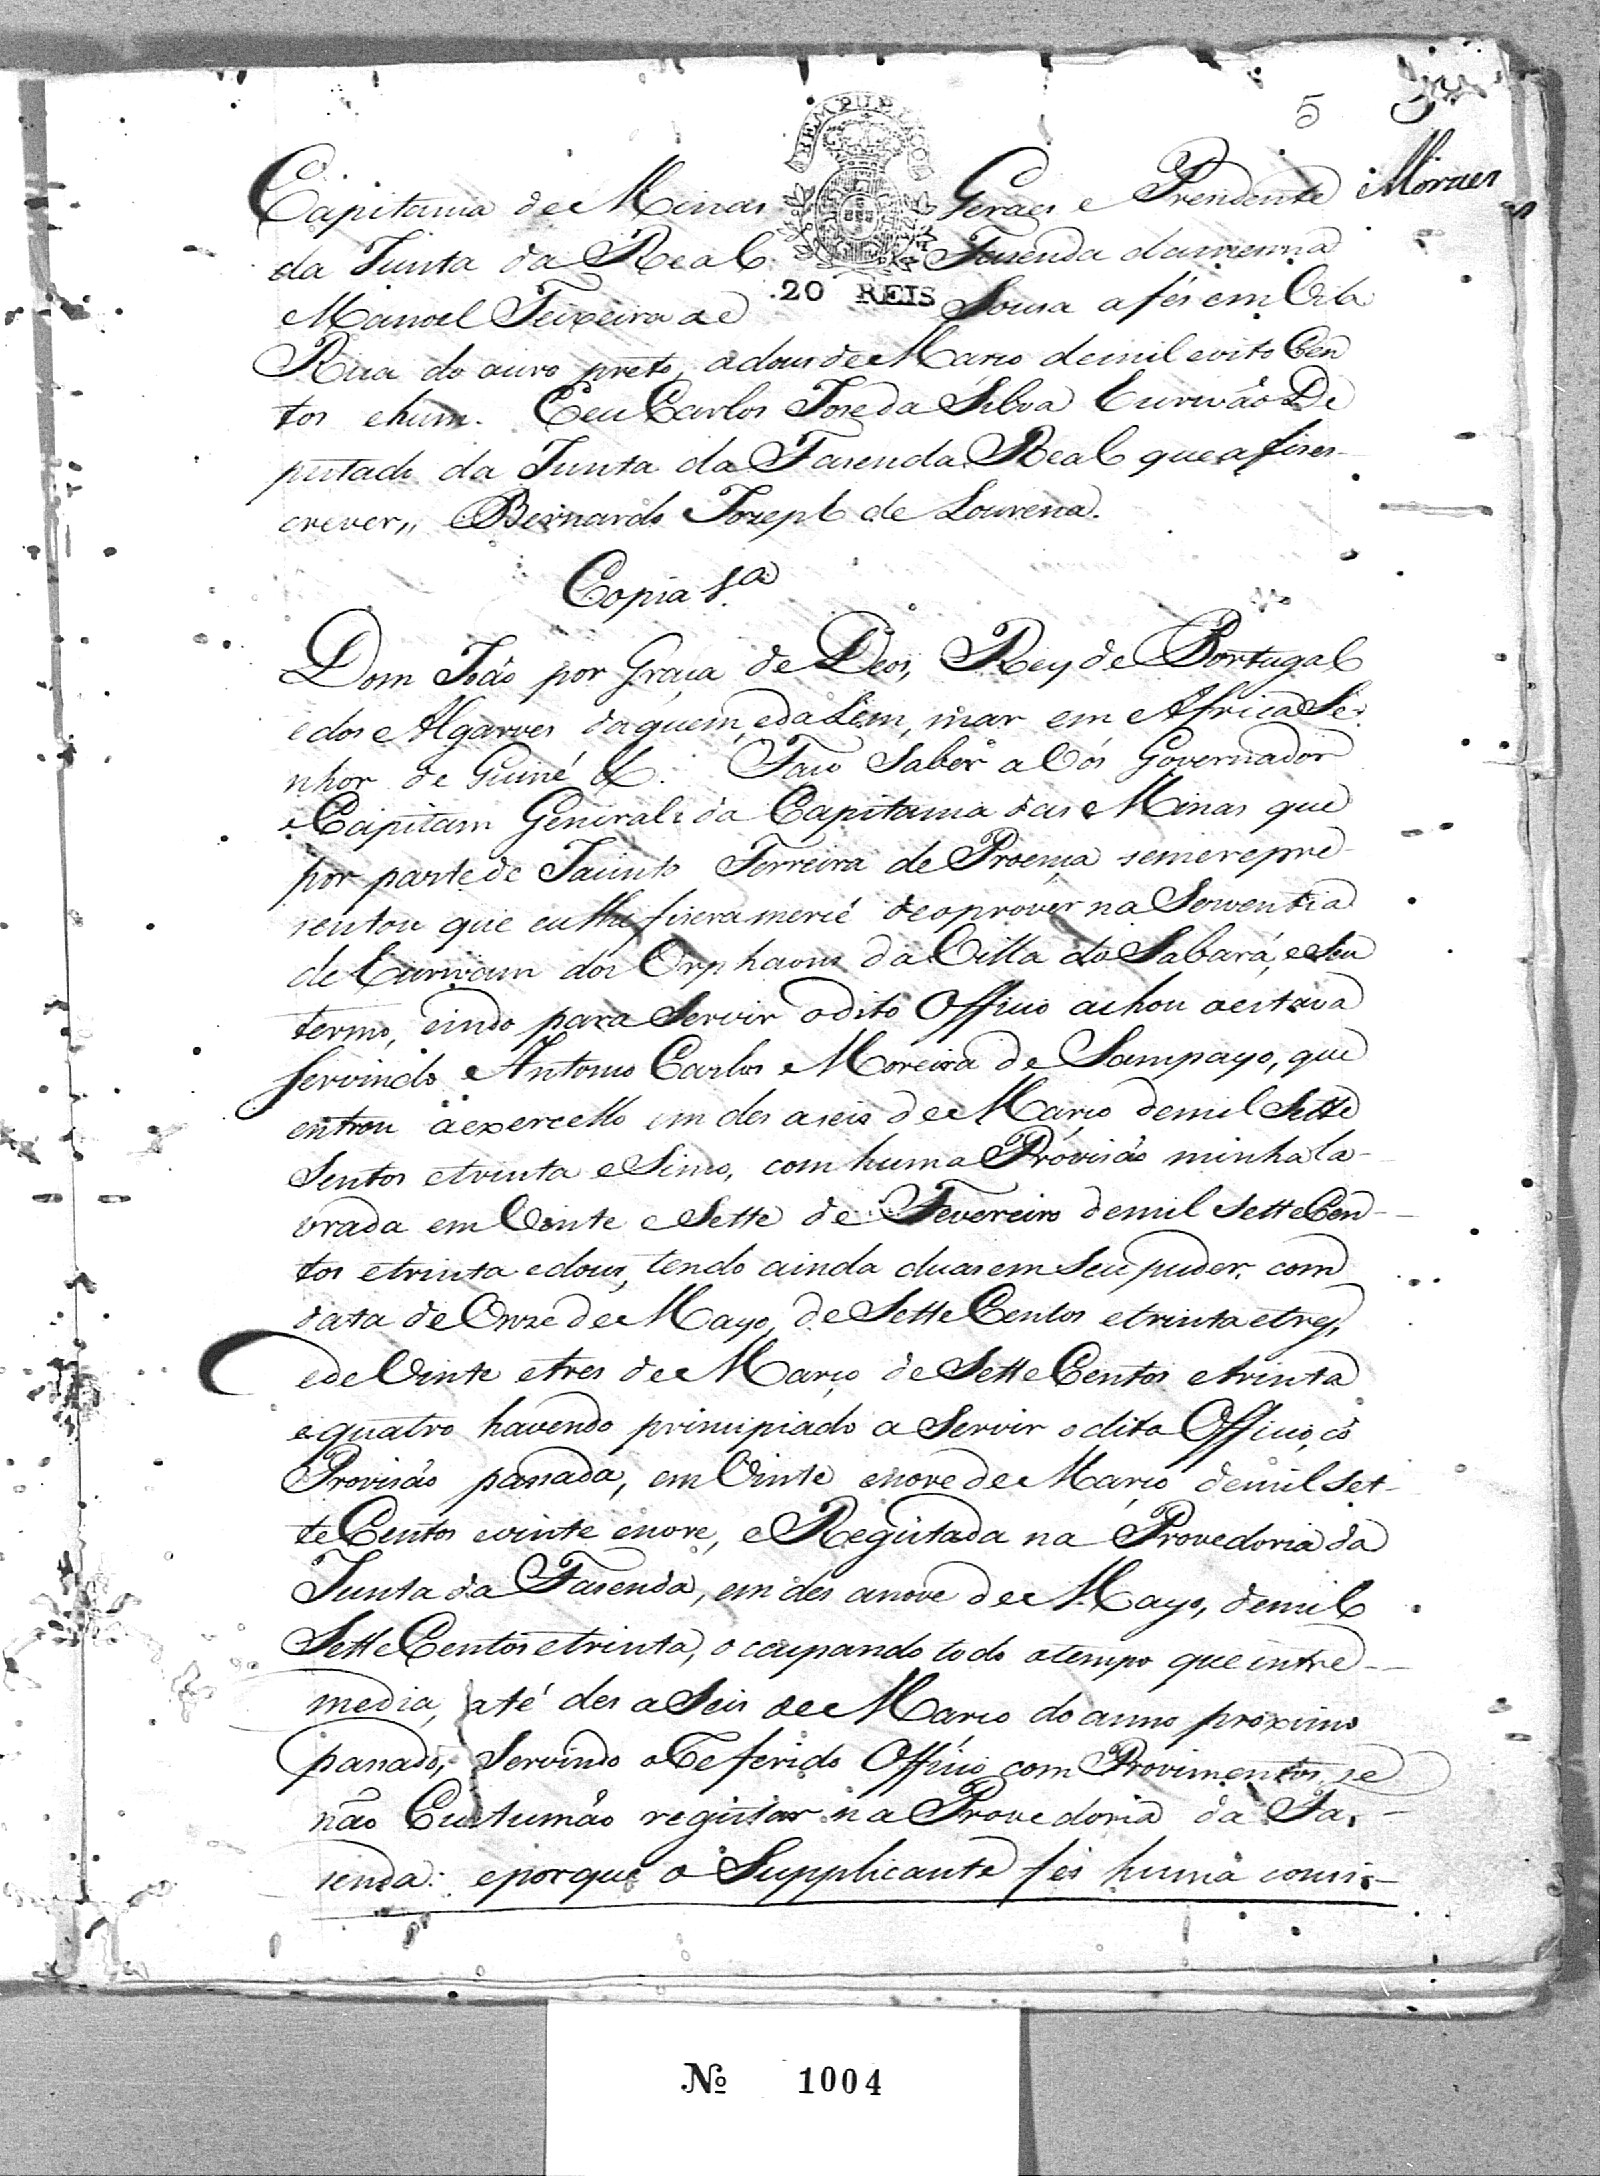 5
Moraes
Capitania de Minas Geraes e Prezidente
da Junta da Real Fasenda damesma
20 REIS
Manoel Teixeira de Sousa afés em Vila
Rica do ouro preto, adous de Março demil eoito Cen
tos ehum. E eu Carlos Jose da Silva Escrivão De
putado da Junta da Fasenda Real que a fises-
crever,, Bernardo Jozeph de Lourena.
Copia 1.a
Dom João por Graça de Deos, Rey de Portugal
e dos Algarves daquem, eda Lem, mar em Africa Se-
nhor de Guiné &. Faço Saber a Vós Governador
e Capitam General da Capitania das Minas que
por parte de Jacinto Ferreira de Proença semerepre-
sentou que eulhe fisera mercé deoprover na Serventia
de Escrivam dos Orphaons da Villa do Sabará, e Seu
termo, eindo para Servir odito Officio achou aestava
servindo Antonio Carlos Moreira de Sampayo, que
entrou aexercello em des aseis de Março demil Sette
Sentos etrinta e Sinco, com huma Provisão minha la-
vrada em Vinte e Sette de Fevereiro demil Sette Cen-
tos etrinta edous, tendo ainda duas em Seu puder, com
data de Onze de Mayo, de Sette Centos etrinta etres,
ede Vinte etres de Março de Sette Centos etrinta
equatro havendo principiado a Servir odito Officio, cõ
Provisão passada, em Vinte enove de Março demil Set-
te Centos evinte enove, e Registada na Provedoria da
Junta da Fasenda, em des anove de Mayo, demil
Sette Centos etrinta, occupando todo otempo que intre-
media, até des a Seis de Março do anno proximo
passado, Servindo o Referido Officio com Provimentos, se
não Custumão registar na Provedoria da Fa-
senda: eporque o Supplicante fes huma consi-
No 1004